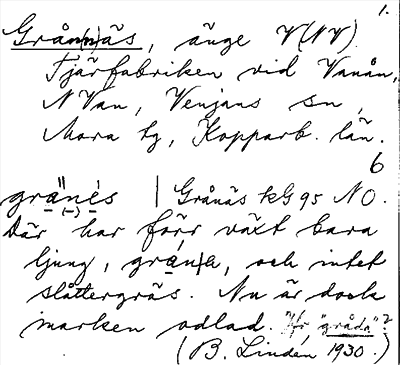 1.
Grån(n)äs, änge V(NV)
Tjärfabriken vid Vanån,
N Van, Venjans sn,
Mora tg, Kopparb. län.
6
grä̀nés | Grånäs kG 95 NO.
Där har förr växt bara
ljung, gràn|a, och intet
slåttergräs. Nu är dock
marken odlad. "Hr "gråda"?
(B. Lindén 1930.)